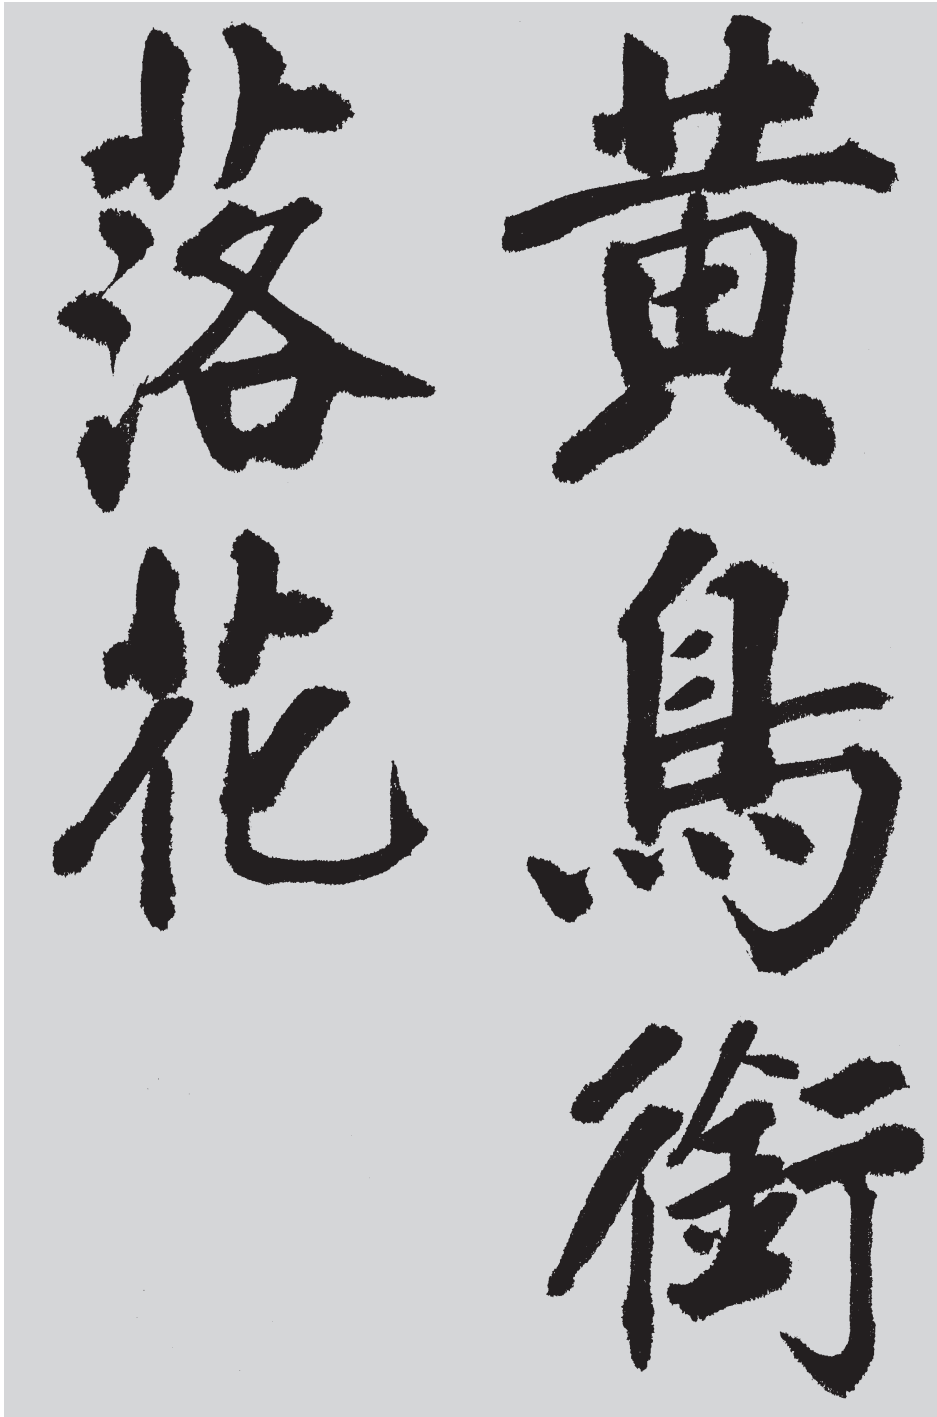 黄鳥銜
落花